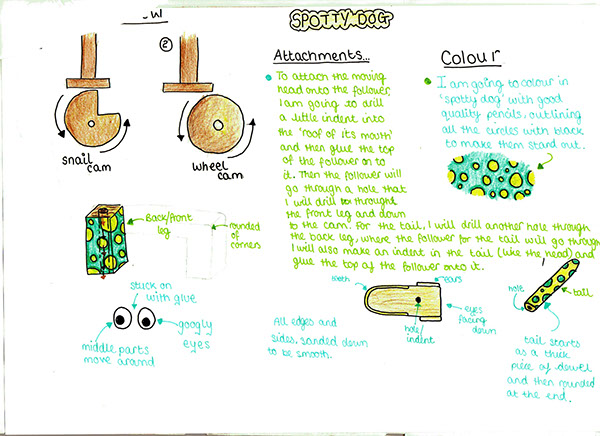 SPOTTY DOG
②
snail
cam
wheel
cam
Attachments...
To attach the moving
head onto the follower,
I am going to drill
a little indent into
the 'roof of its mouth'
and then glue the top
of the follower on to
it. Then the follower will
go through a hole that
I will drill throught
the front leg and down
to the cam. For the tail, I will drill another hole through
the back leg, where the follower for the tail will go through
I will also make an indent in the tail (like the head) and
glue the top of the follower onto it.
Colour
I am going to colour in
'spotty dog' with good
quality pencils, outlining
all the circles with black
to make them stand out.
Back/front
leg
rounded
of
corners
stuck on
with glue
middle parts
move around
googly
eyes
All edges and
sides, sanded down
to be smooth.
ears
hole/
indent
eyes
facing
down
hole
tail
tail starts
as a thick
piece of dowel
and then rounded
at the end.